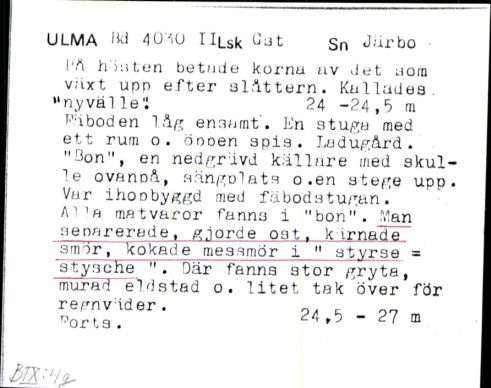 ULMA Bd 4030 II Lsk Gst Sn Järbo
På hösten betade korna av det som
växt upp efter slåttern. Kallades
"nyvälle". 24 -24,5 m
Fäboden låg ensamt. En stuga med
ett rum o. öppen spis. Ladugård.
"Bon", en nedgrävd källare med skul-
le ovanpå, sängplats o.en stege upp.
Var ihopbyggd med fäbodstugan.
Alla matvaror fanns i "bon". Man
separerade, gjorde ost, kärnade
smör, kokade messmör i " styrse =
stysche ". Där fanns stor gryta,
murad eldstad o. litet tak över för
regnväder. 24,5 - 27 m
Forts.
BIX:4g